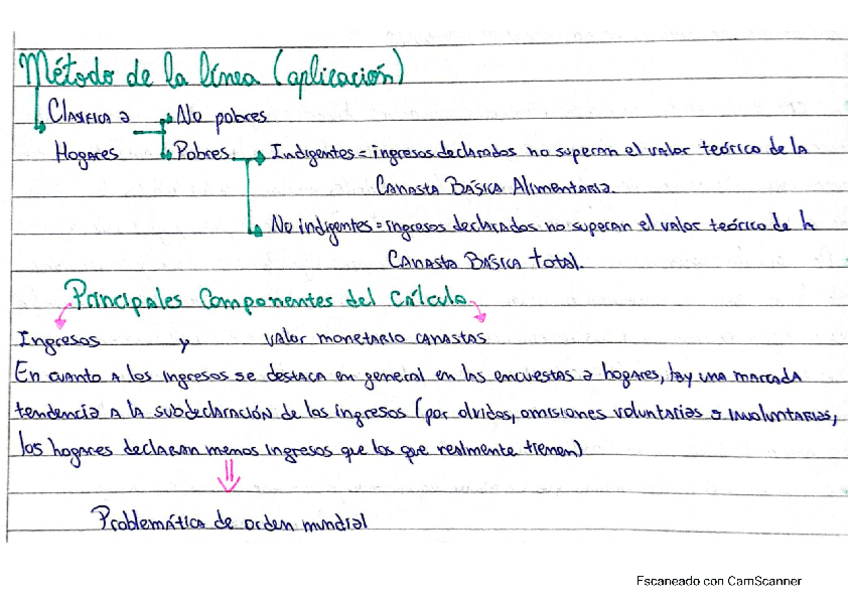 Método de la línea (aplicación)
Clasifica a No pobres
Hogares Pobres Indigentes = ingresos declarados no superan el valor teórico de la
Canasta Básica Alimentaria.
No indigentes = ingresos declarados no superan el valor teórico de la
Canasta Básica total.
Principales Componentes del Cálculo
Ingresos y valor monetario canastas
En cuanto a los ingresos se destaca en general en las encuestas a hogares, hay una marcada
tendencia a la subdeclaración de los ingresos (por olvidos, omisiones voluntarias o involuntarias,
los hogares declaran menos ingresos que los que realmente tienen)
Problemática de orden mundial
Escaneado con CamScanner